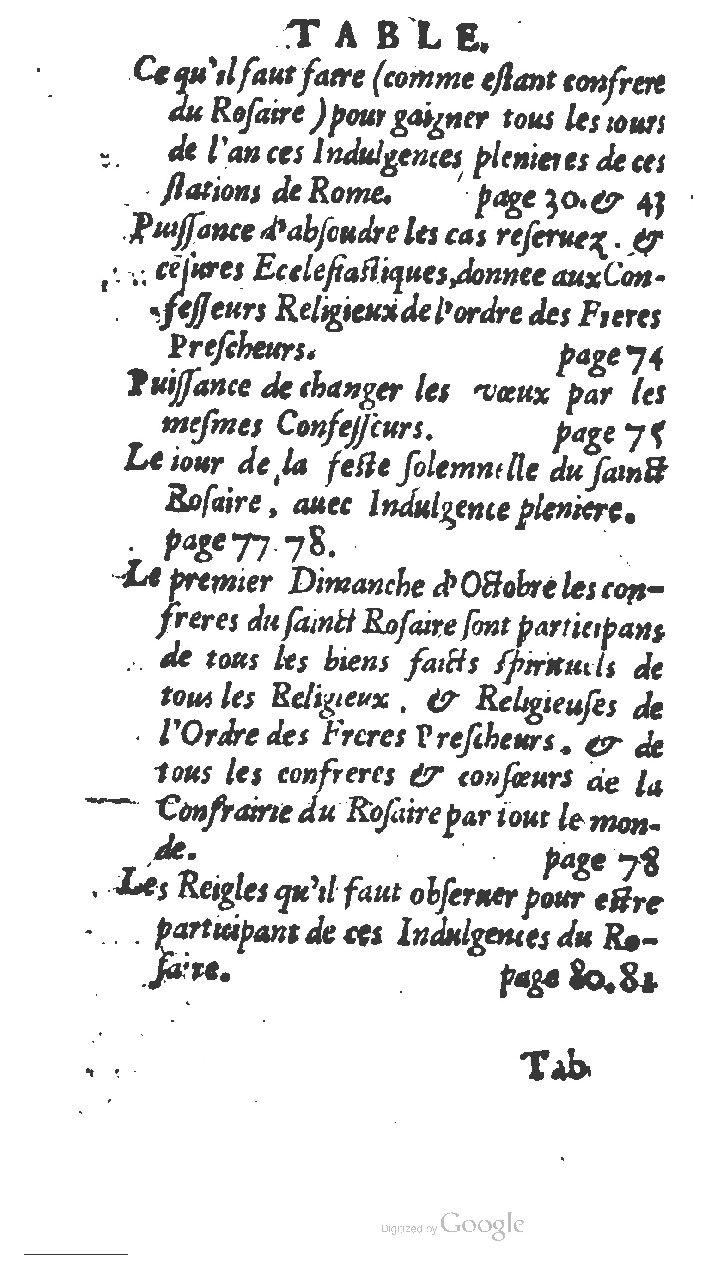 TABLE.
Ce qu'il faut faire (comme eſtant confrere
du Roſaire ) pour gaigner tous les iours
de l'an ces Indulgences plenieres de ces
ſtations de Rome. page 30. & 43
Puiſſance d'abſoudre les cas reſeruez. &
céſures Eccleſiaſtiques, donnee aux Con-
feſſeurs Religieux de l'ordre des Freres
Preſcheurs. page 74
Puiſſance de changer les vœux par les
meſmes Confeſſeurs. page 75
Le iour de la feſte ſolemnelle du ſainct
Roſaire, auec Indulgence pleniere.
page 77. 78.
Le premier Dimanche d'Octobre les con-
freres du ſainct Roſaire ſont participans
de tous les biens faicts ſpirituels de
tous les Religieux, & Religieuſes de
l'Ordre des Freres Preſcheurs. & de
tous les confreres & conſœurs de la
Confrairie du Roſaire par tout le mon-
de. page 78
Les Reigles qu'il faut obſeruer pour eſtre
participant de ces Indulgences du Ro-
ſaire. page 80. 81
Tab
Digitized by Google